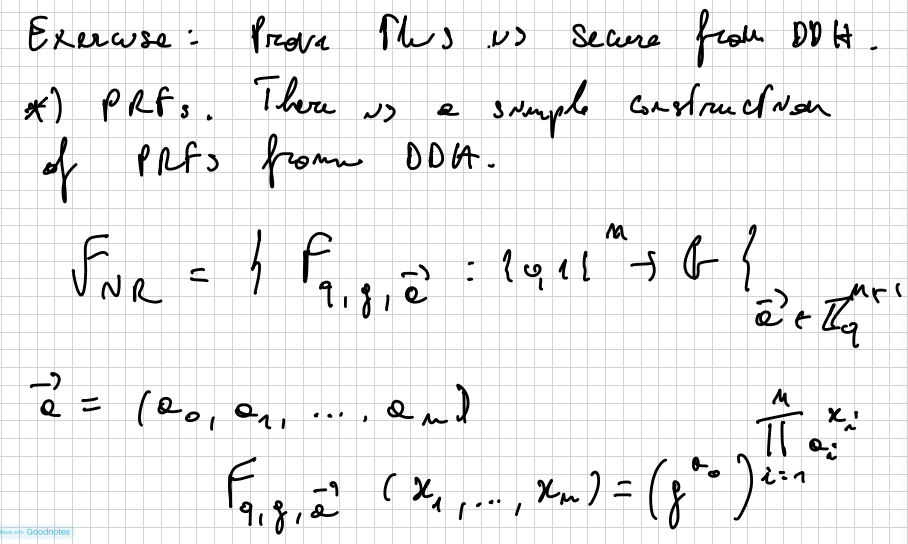 Exercise: Prove this is secure from DDH.
*) PRFs. There is a simple construction
of PRFs from DDH.
F_NR = { F_{q,g,\vec{a}} : {0,1}^n → G }_{\vec{a} ∈ Z_q^{n+1}}
\vec{a} = (a_0, a_1, ..., a_n)
F_{q,g,\vec{a}} (x_1, ..., x_n) = (g^{a_0})^{∏_{i=1}^{n} a_i^{x_i}}
Made with Goodnotes